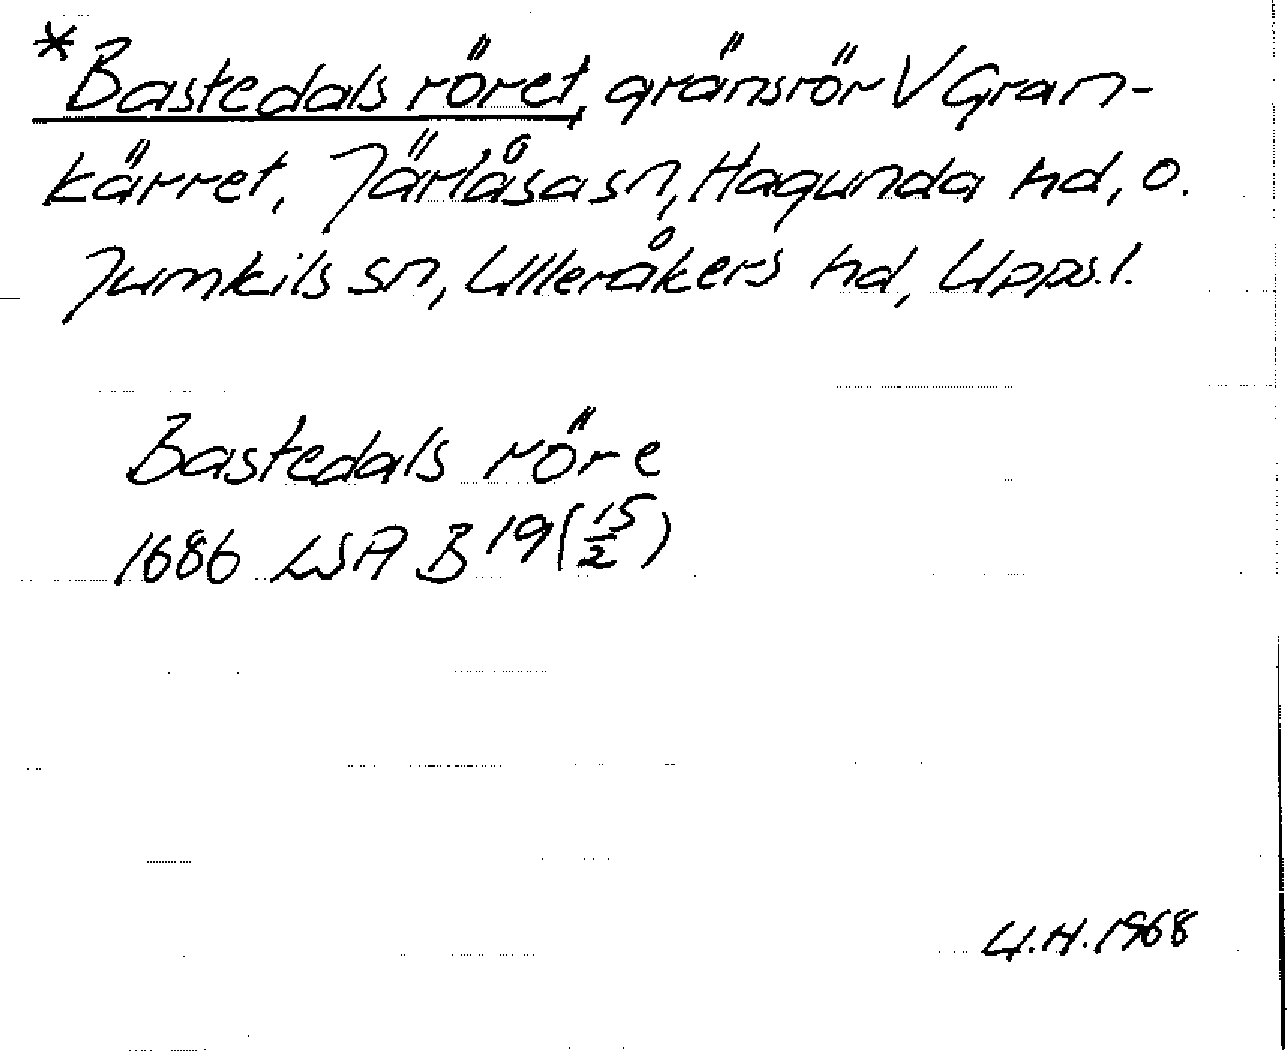 *Bastedals röret, gränsrör V Gran-
kärret, Järlåsa sn, Hagunda hd, o.
Jumkils sn, Ulleråkers hd, Upps.l.
Bastedals röre
1686 LSA B 19 (15/2)
U.H. 1968